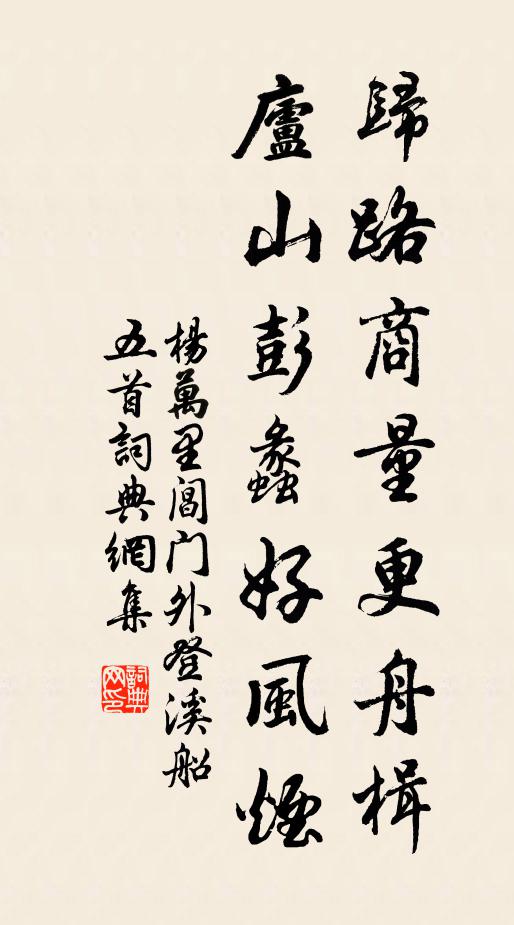 歸路商量更舟楫
廬山彭蠡好風煙
楊萬里閶门外登溪船
五首詞典網集
詞典网印